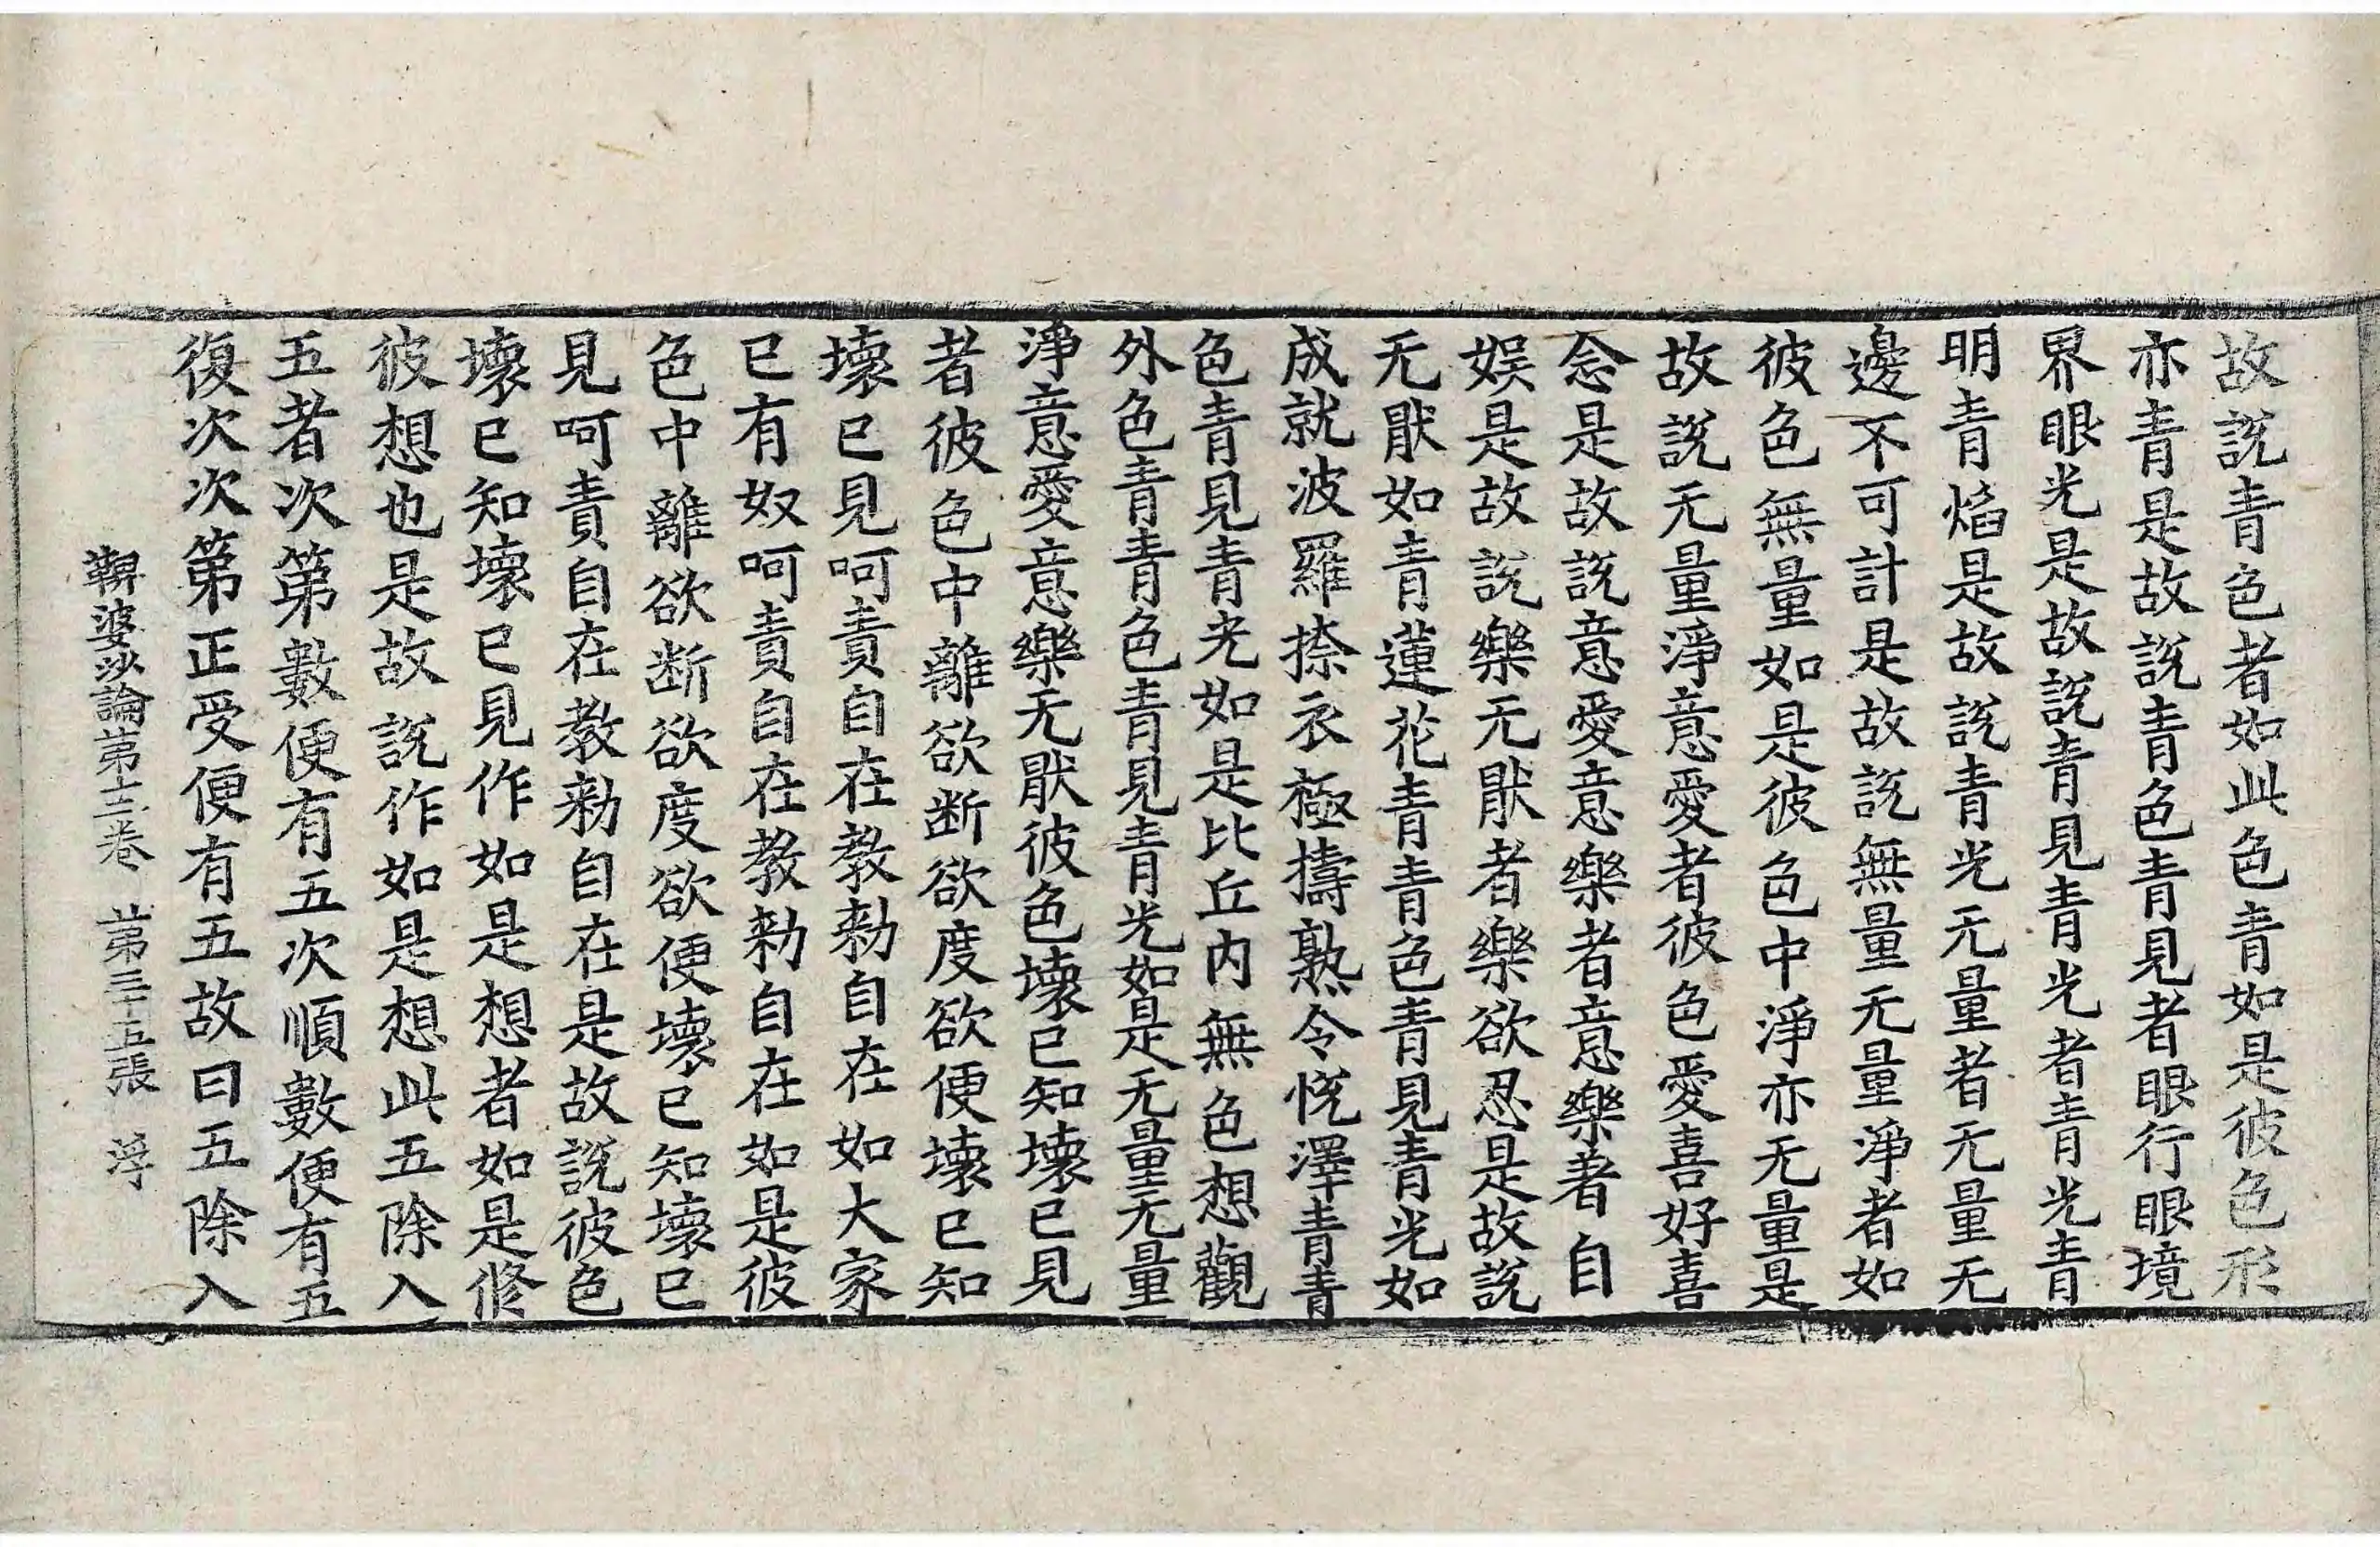 故說青色者如此色青如是彼色形
亦青是故說青色青見者眼行眼境
界眼光是故說青見青光者青光青
明青焰是故說青光无量者无量无
邊不可計是故說無量无量淨者如
彼色無量如是彼色中淨亦无量是
故說无量淨意愛者彼色愛喜好喜
念是故說意愛意樂者意樂著自
娛是故說樂无猒者樂欲忍是故說
无猒如青蓮花青青色青見青光如
成就波羅捺衣極擣熟令悅澤青青
色青見青光如是比丘内無色想觀
外色青青色青見青光如是无量无量
淨意愛意樂无猒彼色壞已知壞已見
者彼色中離欲断欲度欲便壞已知
壞已見呵責自在教勑自在如大家
已有奴呵責自在教勑自在如是彼
色中離欲断欲度欲便壞已知壞已
見呵責自在教勑自在是故說彼色
壞已知壞已見作如是想者如是修
彼想也是故說作如是想此五除入
五者次第數便有五次順數便有五
復次次第正受便有五故曰五除入
鞞婆沙論第十三卷　第三十五張　浮